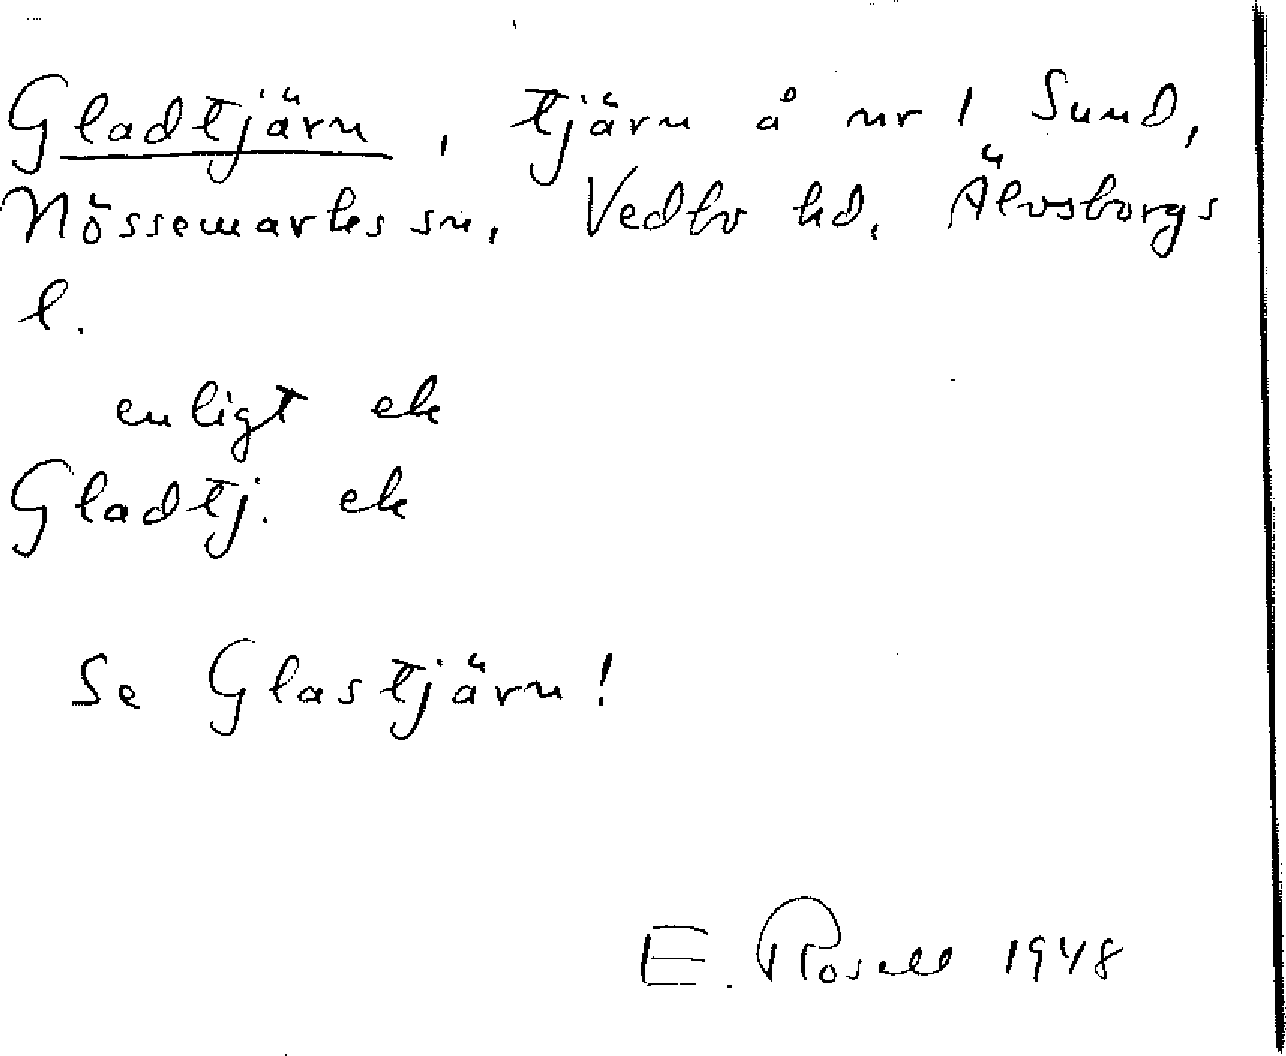 Gladtjärn, tjärn å nr 1 Sund,
Nössemarks sn, Vedbo hd, Älvsborgs
l.
enligt ek
Gladtj. ek
Se Glastjärn!
E. Rosell 1948